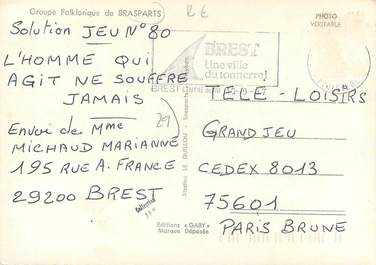 Groupe Folklorique de BRASPARTS
PHOTO
VERITABLE
Solution JEU N°80
L'HOMME QUI
AGIT NE SOUFFRE
JAMAIS
Envoi de Mme
MICHAUD MARIANNE
195 RUE A. FRANCE
29200 BREST
29
BREST
Une ville
du tonnerre!
TELE-LOISIRS
GRAND JEU
CEDEX 8013
75601
PARIS BRUNE
Editions «GABY»
Marque Déposée